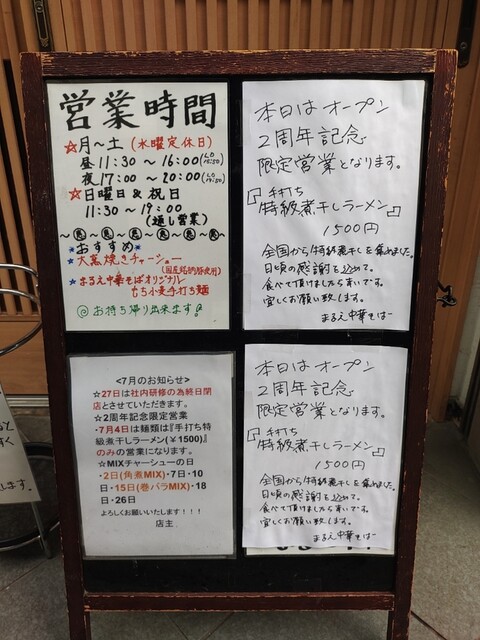 営業時間
☆月～土(水曜定休日)
昼11:30～16:00(LO 15:50)
夜17:00～20:00(LO 19:50)
☆日曜日&祝日
11:30～19:00
(通し営業)
おすすめ
大蒸焼きチャーシュー
(国産銘柄豚使用)
まるえ中華そばオリジナル
もち小麦手打ち麺
@お持ち帰り出来ます!
本日はオープン
2周年記念
限定営業となります。
『手打ち
特級煮干しラーメン』
1500円
全国から特級煮干しを集めました。
日頃の感謝を込めて。
食べて頂けましたら幸いです。
宜しくお願い致します。
まるえ中華そば
<7月のお知らせ>
☆27日は社内研修の為終日閉
店とさせていただきます。
☆2周年記念限定営業
・7月4日は麺類は『手打ち特
級煮干しラーメン(¥1500)』
のみの営業になります。
☆MIXチャーシューの日
・2日(角煮MIX)・7日・10
日・15日(巻バラMIX)・18
日・26日
よろしくお願いいたします!!!
店主
本日はオープン
2周年記念
限定営業となります。
『手打ち
特級煮干しラーメン』
1500円
全国から特級煮干しを集めました。
日頃の感謝を込めて。
食べて頂けましたら幸いです。
宜しくお願い致します。
まるえ中華そば